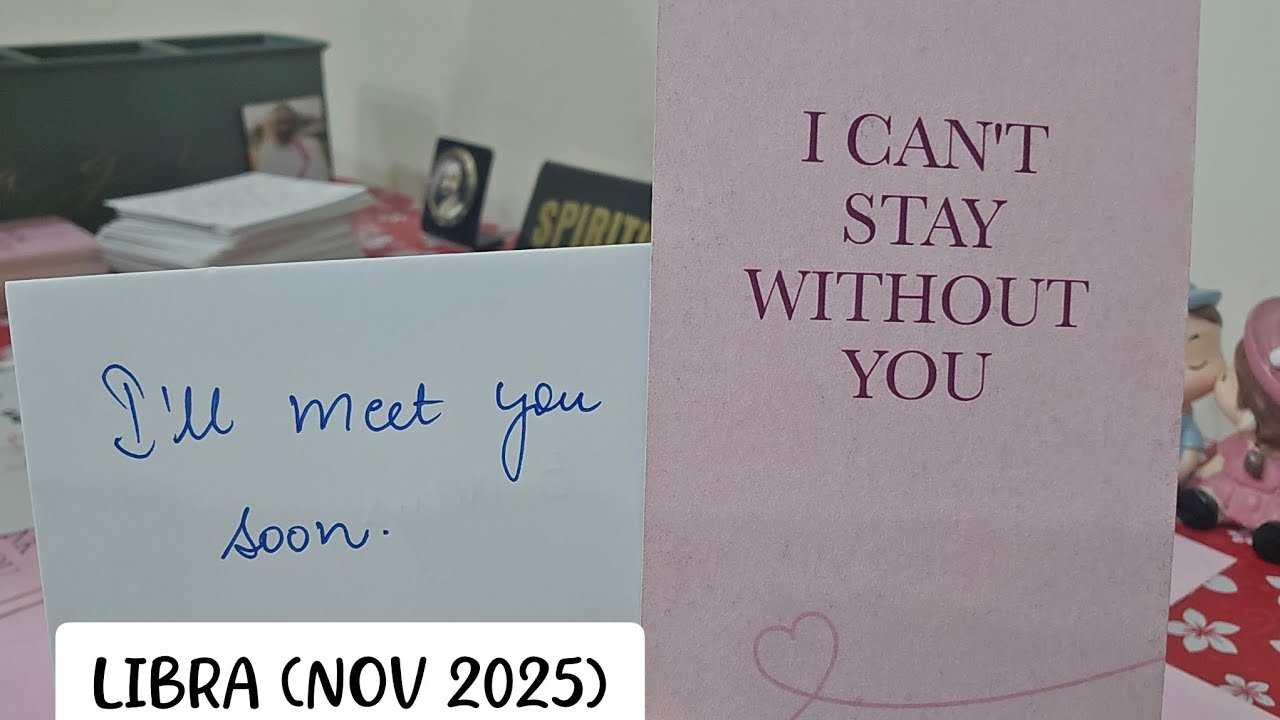 I'll meet you
soon.
I CAN'T
STAY
WITHOUT
YOU
LIBRA (NOV 2025)